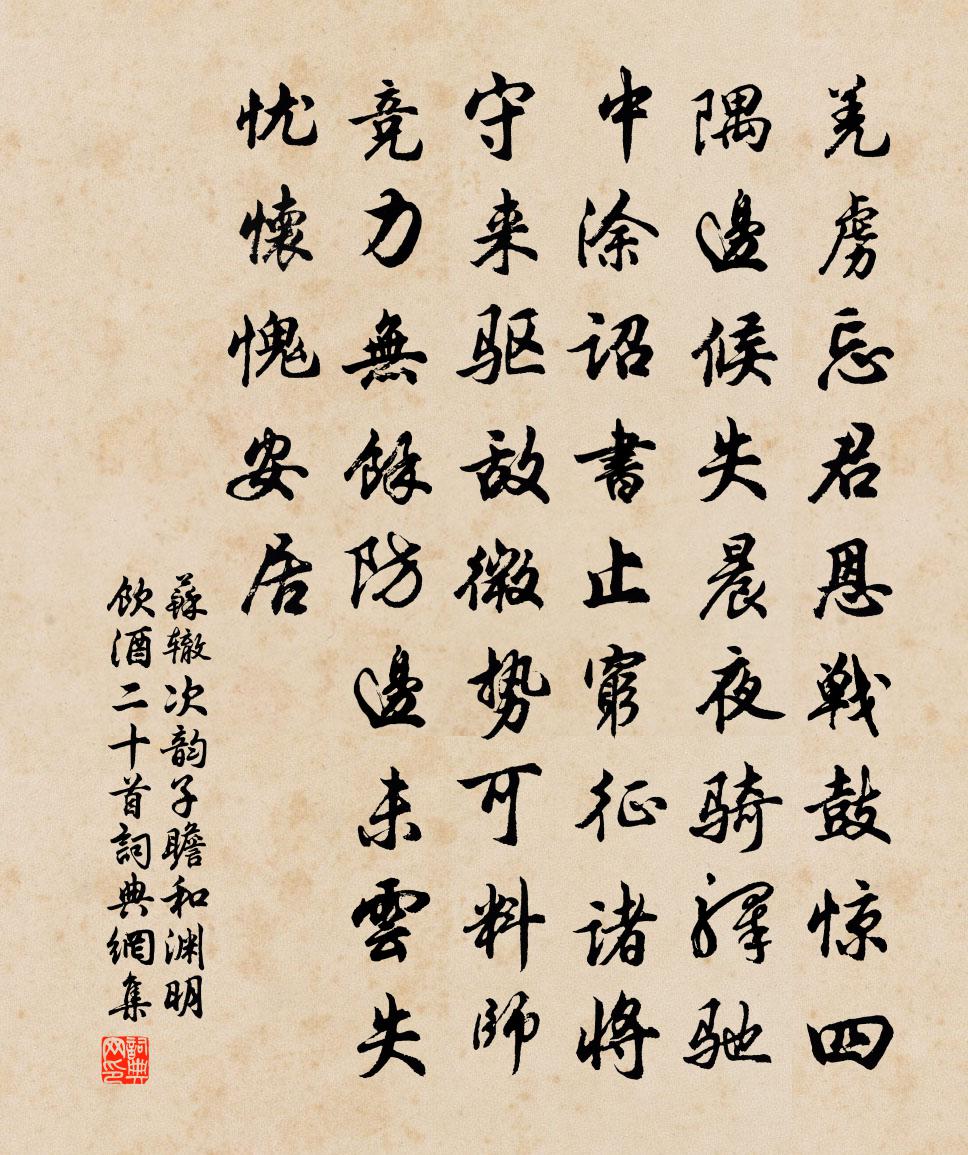 羌虏忘君恩战鼓惊四
隅邊候失晨夜骑驿驰
中涂诏書止穷征诸将
守来驱敌微势可料师
竞力無餘防邊未雲失
忧懷愧安居
蘇辙次韵子瞻和渊明
飲酒二十首詞典網集